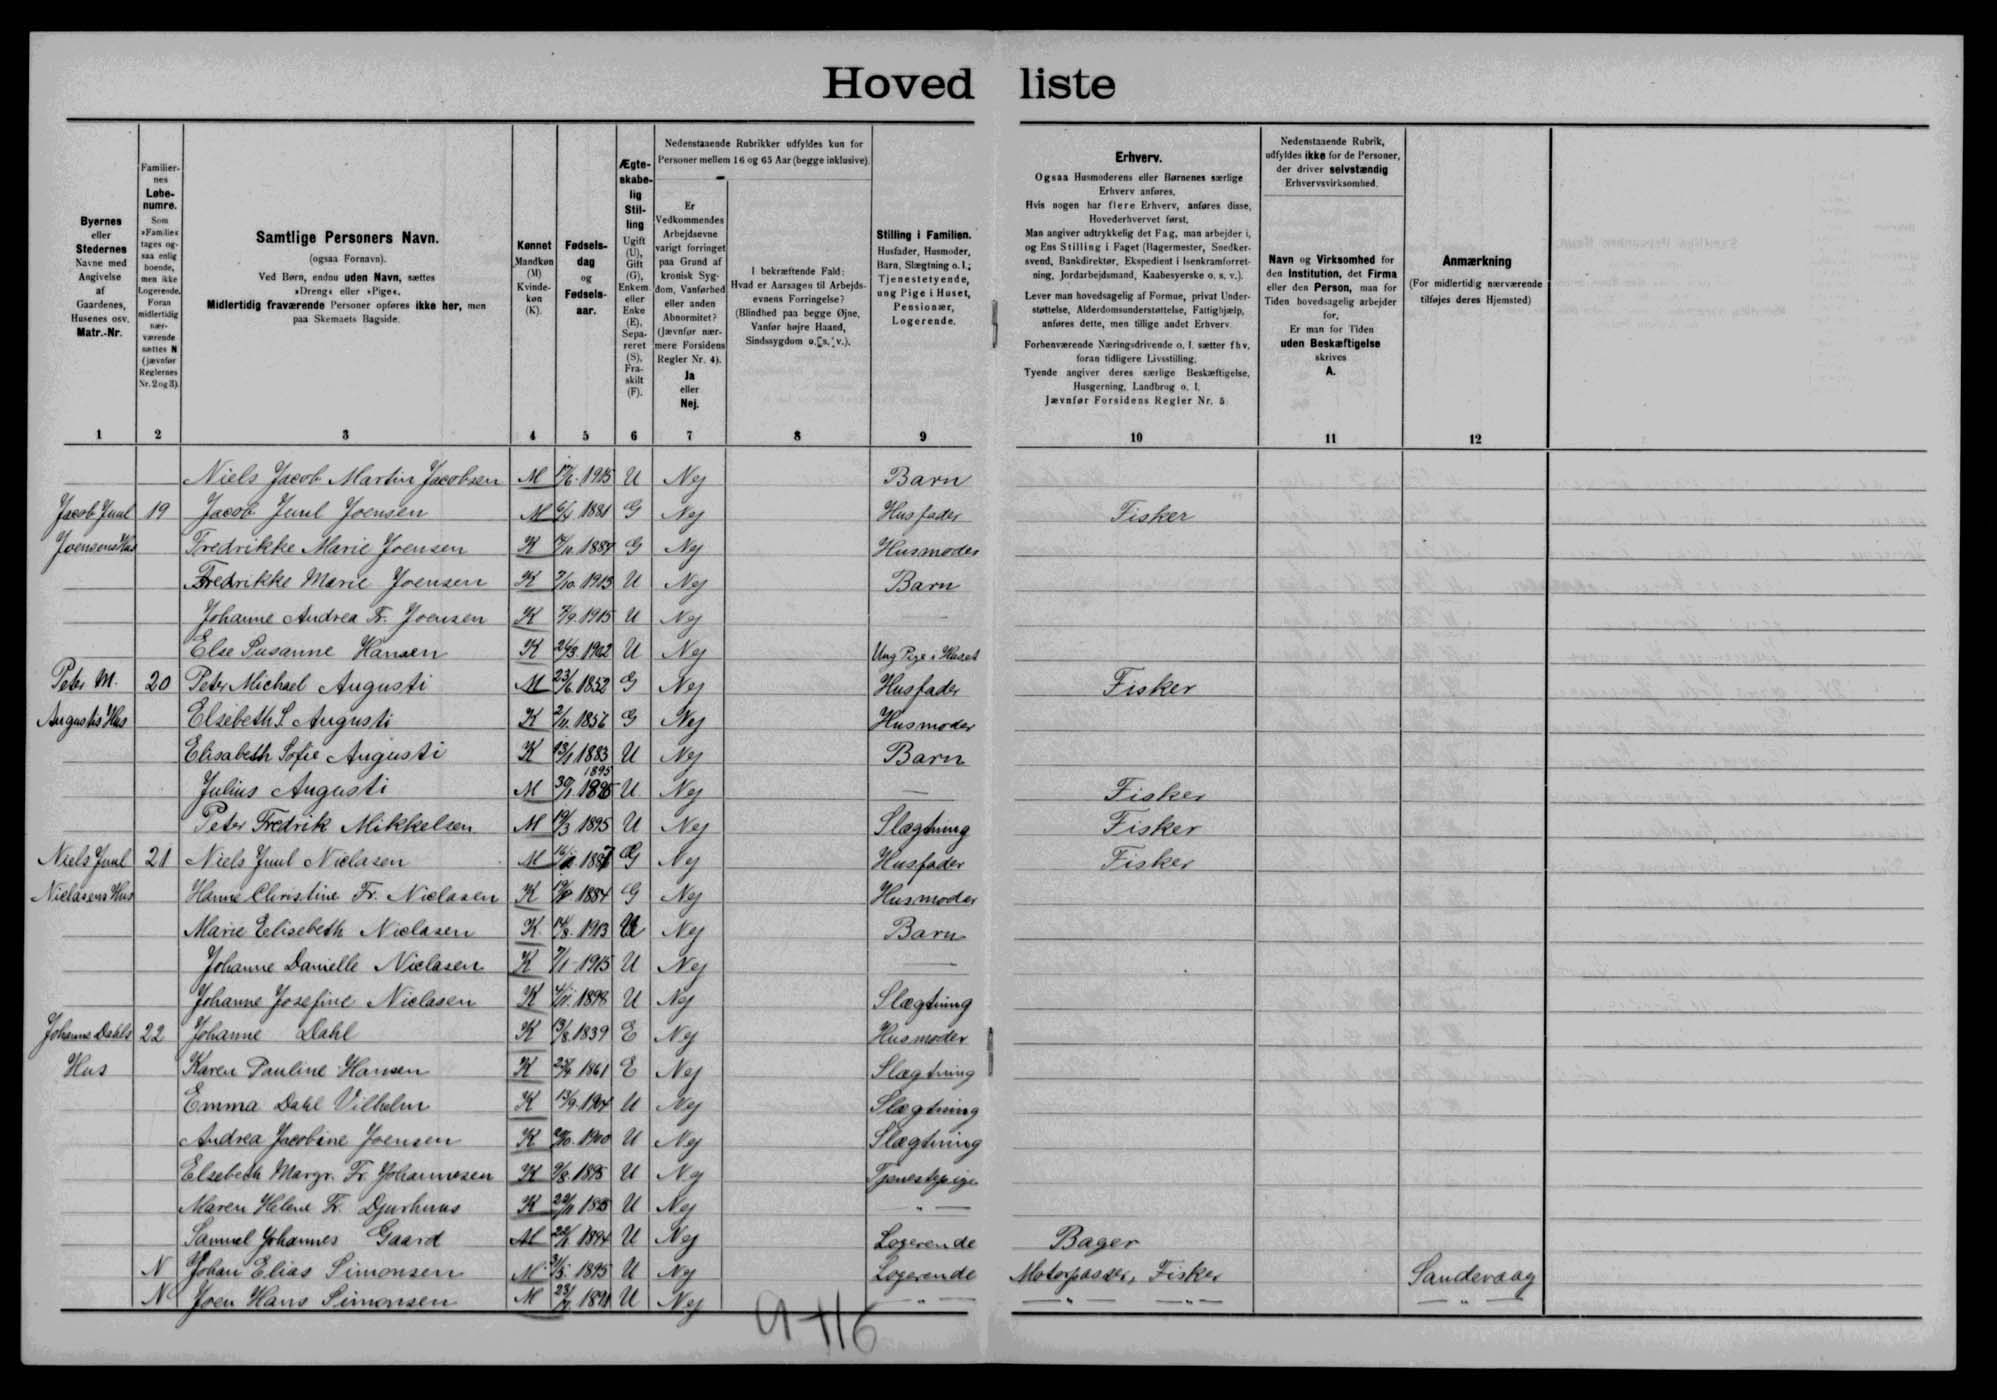 Hovedliste
Byernes eller Stedernes Navne med Angivelse af Gaardenes, Husenes osv. Matr.-Nr.
Familiernes Løbenumre. Som »Familie« tages ogsaa enlig boende, men ikke Logerende. Foran midlertidig nærværende sættes N (jævnfør Reglernes Nr. 2 og 3).
Samtlige Personers Navn. (ogsaa Fornavn). Ved Børn, endnu uden Navn, sættes »Dreng« eller »Pige«. Midlertidig fraværende Personer opføres ikke her, men paa Skemaets Bagside.
Kønnet Mandkøn (M) Kvindekøn (K).
Fødselsdag og Fødselsaar.
Ægteskabelig Stilling Ugift (U), Gift (G), Enkem. eller Enke (E), Separeret (S), Fraskilt (F).
Nedenstaaende Rubrikker udfyldes kun for Personer mellem 16 og 65 Aar (begge inklusive).
Er Vedkommendes Arbejdsevne varigt forringet paa Grund af kronisk Sygdom, Vanførhed eller anden Abnormitet? (Jævnfør nærmere Forsidens Regler Nr. 4). Ja eller Nej.
I bekræftende Fald: Hvad er Aarsagen til Arbejdsevnens Forringelse? (Blindhed paa begge Øjne, Vanfør højre Haand, Sindssygdom o. s. v.).
Stilling i Familien. Husfader, Husmoder, Barn, Slægtning o. l.; Tjenestetyende, ung Pige i Huset, Pensionær, Logerende.
Erhverv.
Ogsaa Husmoderens eller Børnenes særlige Erhverv anføres.
Hvis nogen har flere Erhverv, anføres disse, Hovederhvervet først.
Man angiver udtrykkelig det Fag, man arbejder i, og Ens Stilling i Faget (Bagermester, Snedkersvend, Bankdirektør, Ekspedient i Isenkramforretning, Jordarbejdsmand, Kaabesyerske o. s. v.).
Lever man hovedsagelig af Formue, privat Understøttelse, Alderdomsunderstøttelse, Fattighjælp, anføres dette, men tillige andet Erhverv.
Forhenværende Næringsdrivende o. l. sætter fhv. foran tidligere Livsstilling.
Tyende angiver deres særlige Beskæftigelse, Husgerning, Landbrug o. l.
Jævnfør Forsidens Regler Nr. 5
Nedenstaaende Rubrik, udfyldes ikke for de Personer, der driver selvstændig Erhvervsvirksomhed.
Navn og Virksomhed for den Institution, det Firma eller den Person, man for Tiden hovedsagelig arbejder for.
Er man for Tiden uden Beskæftigelse skrives A.
Anmærkning (For midlertidig nærværende tilføjes deres Hjemsted)
1 2 3 4 5 6 7 8 9 10 11 12
Niels Jacob Martin Jacobsen M 1915 U Nej Barn
Jacob Juul 19 Jacob Juul Joensen M 1881 G Nej Husfader Fisker
Joensens Hus Fredrikke Marie Joensen K 1884 G Nej Husmoder
Fredrikke Marie Joensen K 1913 U Nej Barn
Johanne Andrea Fr. Joensen K 1915 U Nej —
Else Susanne Hansen K 1902 U Nej Ung Pige i Huset
Peter M. 20 Peter Michael Augusti M 23/6 1852 G Nej Husfader Fisker
Augustis Hus Elsebeth S Augusti K 2/11 1856 G Nej Husmoder
Elisabeth Sofie Augusti K 13/1 1883 U Nej Barn
Julius Augusti M 30/1 1895 U Nej — Fisker
Peter Fredrik Mikkelsen M 1895 U Nej Slægtning Fisker
Niels Juul 21 Niels Juul Niclasen M G Nej Husfader Fisker
Niclasens Hus Hanne Christine Fr. Niclasen K 1884 G Nej Husmoder
Marie Elisebeth Niclasen K 1913 U Nej Barn
Johanne Danielle Niclasen K 1915 U Nej —
Johanne Josefine Niclasen K 1898 U Nej Slægtning
Johanne Dahls 22 Johanne Dahl K 1839 E Nej Husmoder
Hus Karen Pauline Hansen K 1861 E Nej Slægtning
Emma Dahl Vilhelm K 1904 U Nej Slægtning
Andrea Jacobine Joensen K 1900 U Nej Slægtning
Elsebeth Margr. Fr. Johannesen K 1895 U Nej Tjenestepige
Maren Helene Fr. Djurhuus K U Nej — " —
Samuel Johannes Gaard M 1894 U Nej Logerende Bager
N Johan Elias Simonsen M 31/5 1895 U Nej Logerende Motorpasser, Fisker Sandevaag
N Joen Hans Simonsen M U Nej — " — — " — — " — — " —
9+116